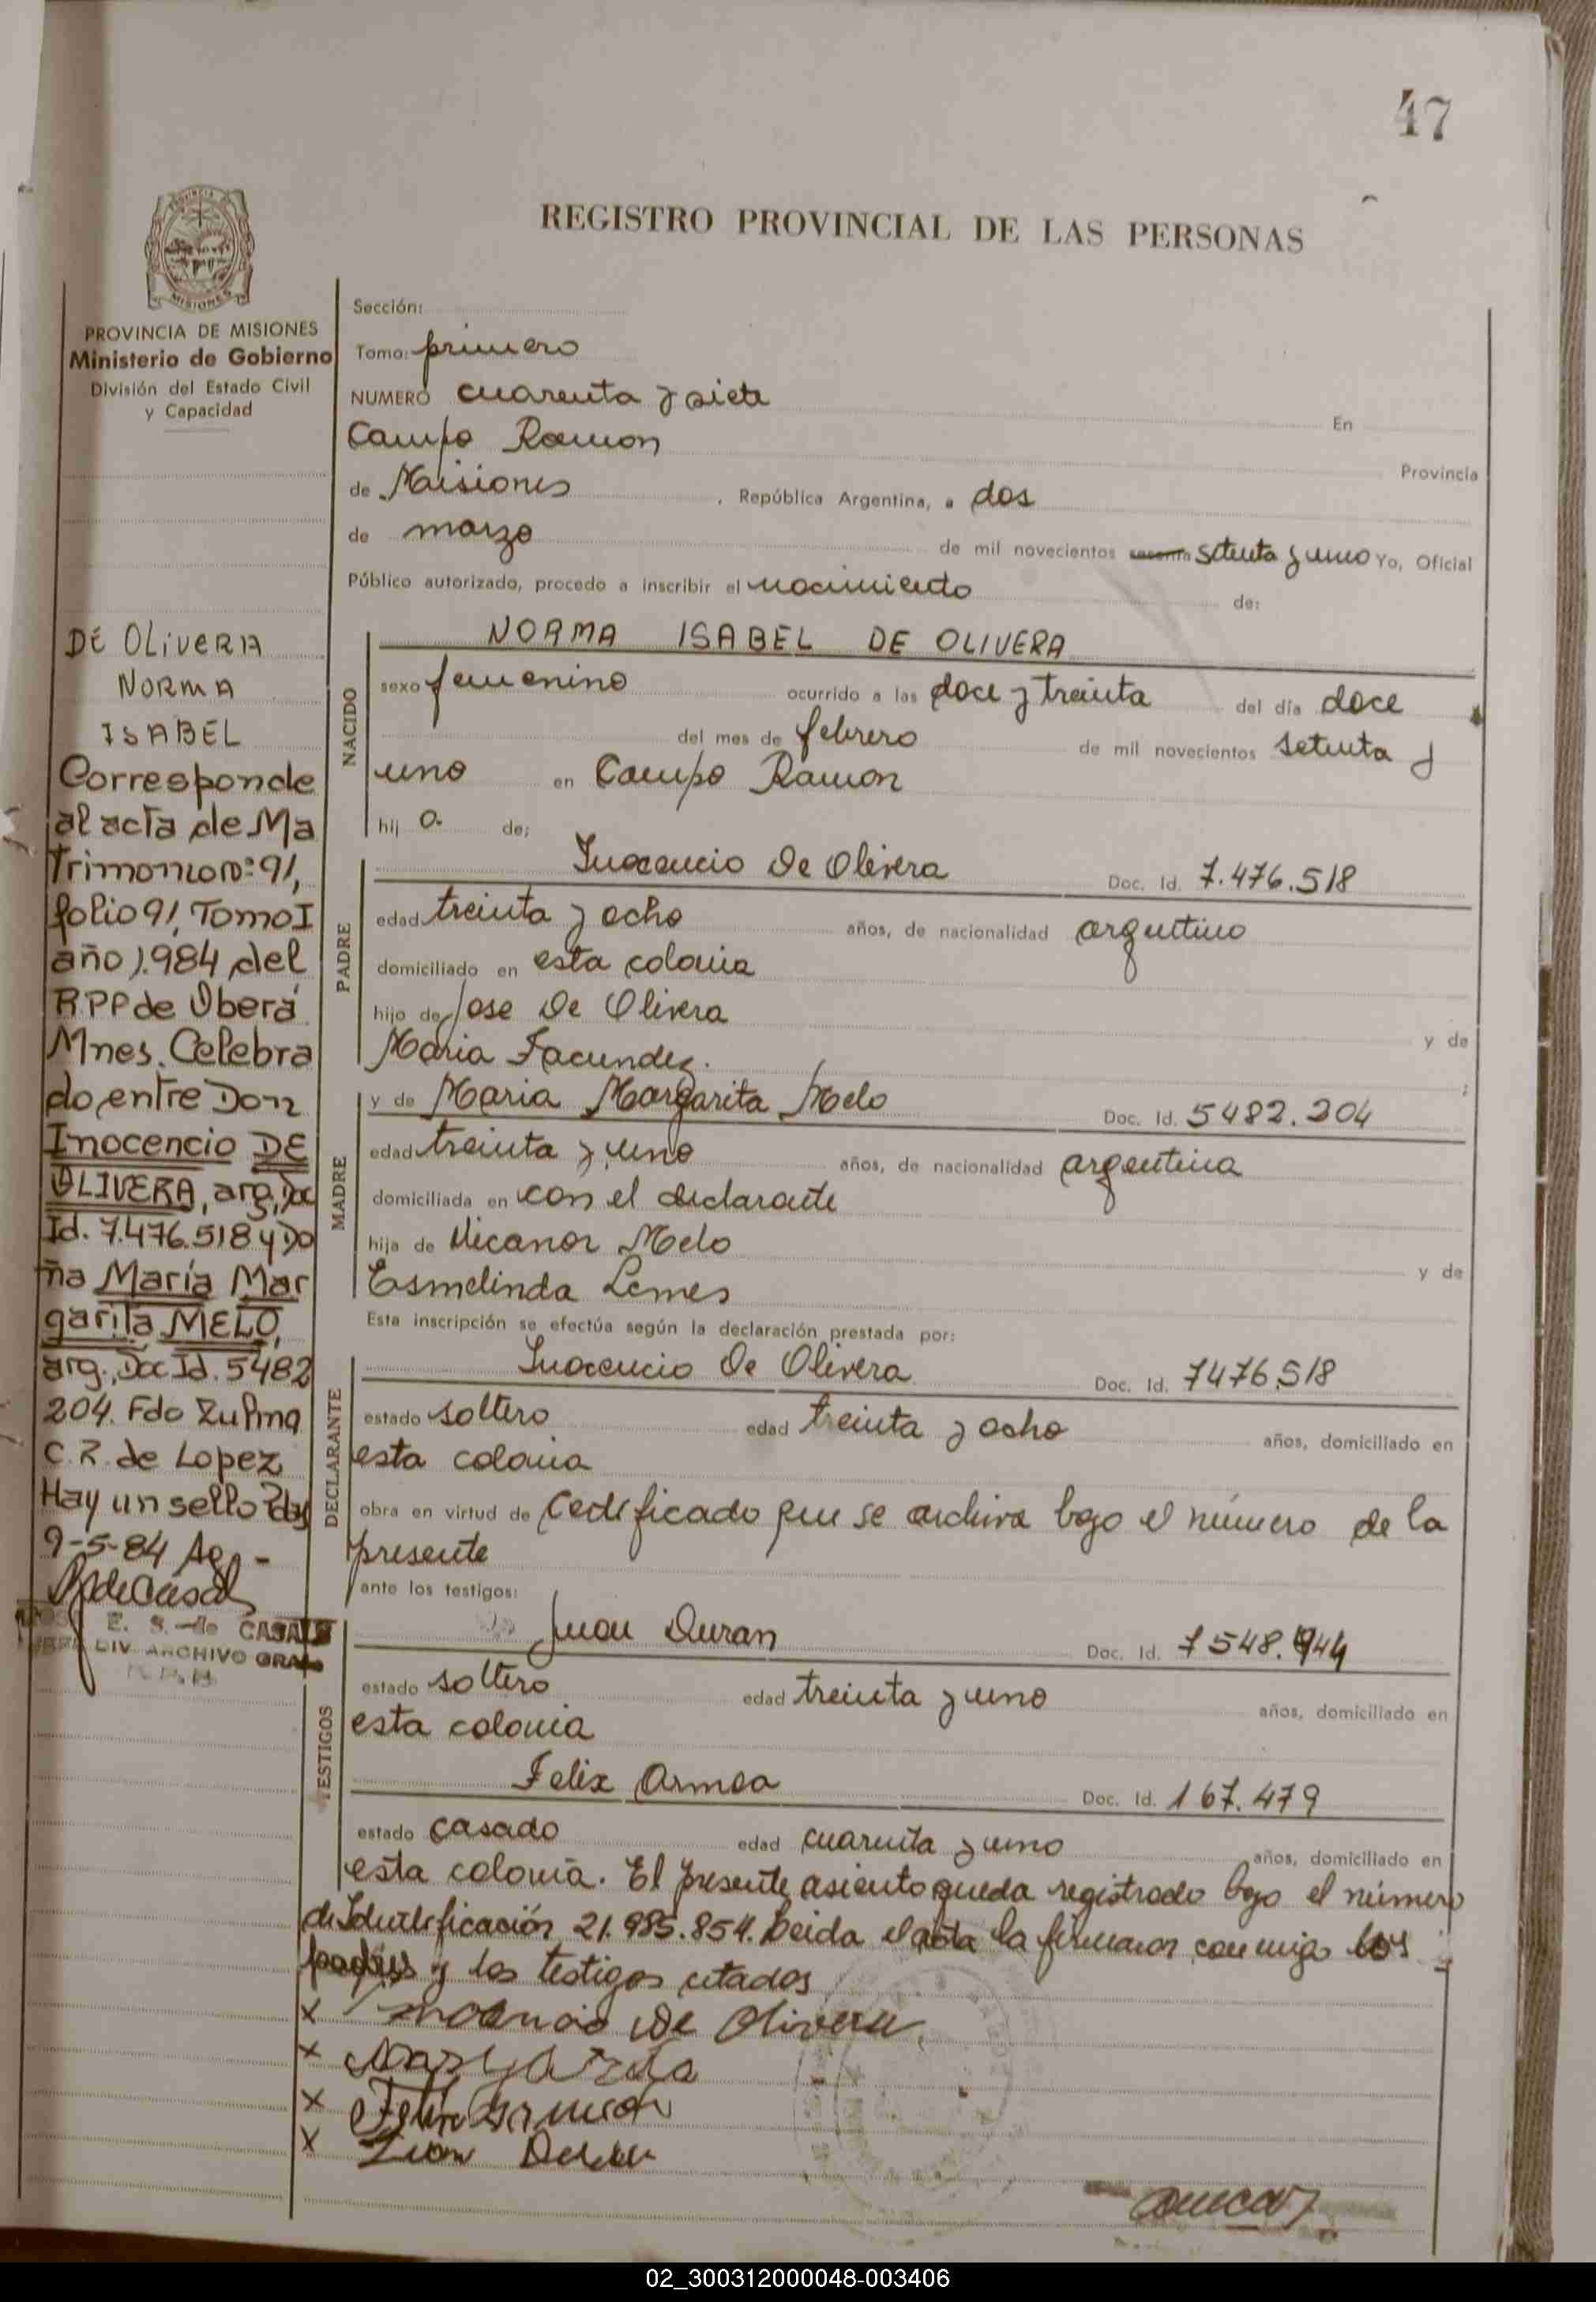 47
REGISTRO PROVINCIAL DE LAS PERSONAS
MISIONES
PROVINCIA DE MISIONES
Ministerio de Gobierno
División del Estado Civil
y Capacidad
DE OLIVERA
NORMA
ISABEL
Corresponde
al acta de Ma
trimonio nº: 91,
folio 91, Tomo I
año 1.984 del
R.P.P de Oberá
Mnes. Celebra
do entre Don
Inocencio DE
OLIVERA, arg. Doc
Id. 7.476.518 y Do
ña María Mar
garita MELO,
arg., Doc Id. 5482
204. Fdo Zulma
C. R. de Lopez
Hay un sello Pdas
9-5-84
E. S. de CASALS
DIV. ARCHIVO GRAL
Sección:
Tomo: primero
NUMERO cuarenta y siete En
Campo Ramon Provincia
de Misiones , República Argentina, a dos
de marzo de mil novecientos setenta y uno Yo, Oficial
Público autorizado, procedo a inscribir el nacimiento de:
NACIDO
NORMA ISABEL DE OLIVERA
sexo femenino ocurrido a las doce y treinta del día doce
del mes de febrero de mil novecientos setenta y
uno en Campo Ramon
hij a de;
PADRE
Inocencio De Olivera Doc. Id. 7.476.518
edad treinta y ocho años, de nacionalidad argentino
domiciliado en esta colonia
hijo de Jose De Olivera y de
Maria Facundez. ;
MADRE
y de Maria Margarita Melo Doc. Id. 5482.204
edad treinta y uno años, de nacionalidad argentina
domiciliada en con el declarante
hija de Nicanor Melo y de
Esmelinda Lemes
Esta inscripción se efectúa según la declaración prestada por:
DECLARANTE
Inocencio De Olivera Doc. Id. 7476.518
estado soltero edad treinta y ocho años, domiciliado en
esta colonia
obra en virtud de Certificado que se archiva bajo el número de la
presente
ante los testigos:
TESTIGOS
Juan Duran Doc. Id. 7548.944
estado soltero edad treinta y uno años, domiciliado en
esta colonia
Felix Armoa Doc. Id. 167.479
estado casado edad cuarenta y uno años, domiciliado en
esta colonia. El presente asiento queda registrado bajo el número
de Identificación 21.985.854. Leida el acta la firman conmigo los
padres y los testigos citados
x Inocencio De Olivera
x Margarita
x Felix Armoa
x Juan Duran
02_300312000048-003406